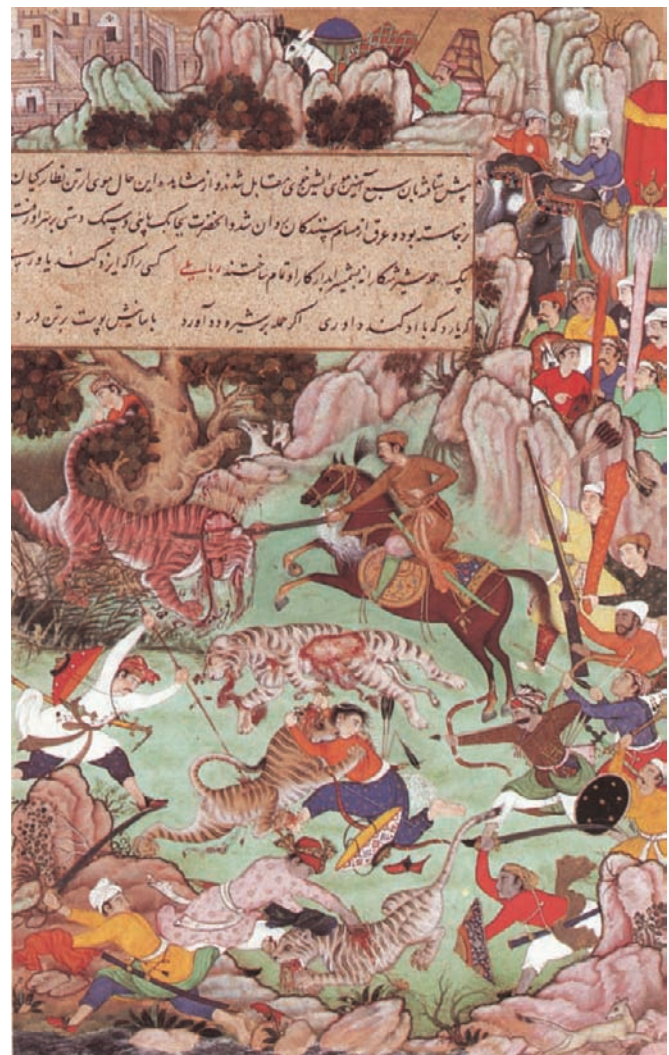 پیش شتافته بآن سبع آهنین موی آتشین خوی مقابل شدند و از مشاهده این حال موی از تن نظارکیان
برخاسته بود و عرق از مسام بینندکان روان شد و آنحضرت بچابک پایی و سبک دستی بر سر او رفته
بیک حمله شیر شکارانه بشمشیر آبدار کار او تمام ساختند کسی را که ایزد کند یاوری
که یارد که با او کند داوری اکر حمله بر شیر آورد بآسانیش پوست بر تن درد